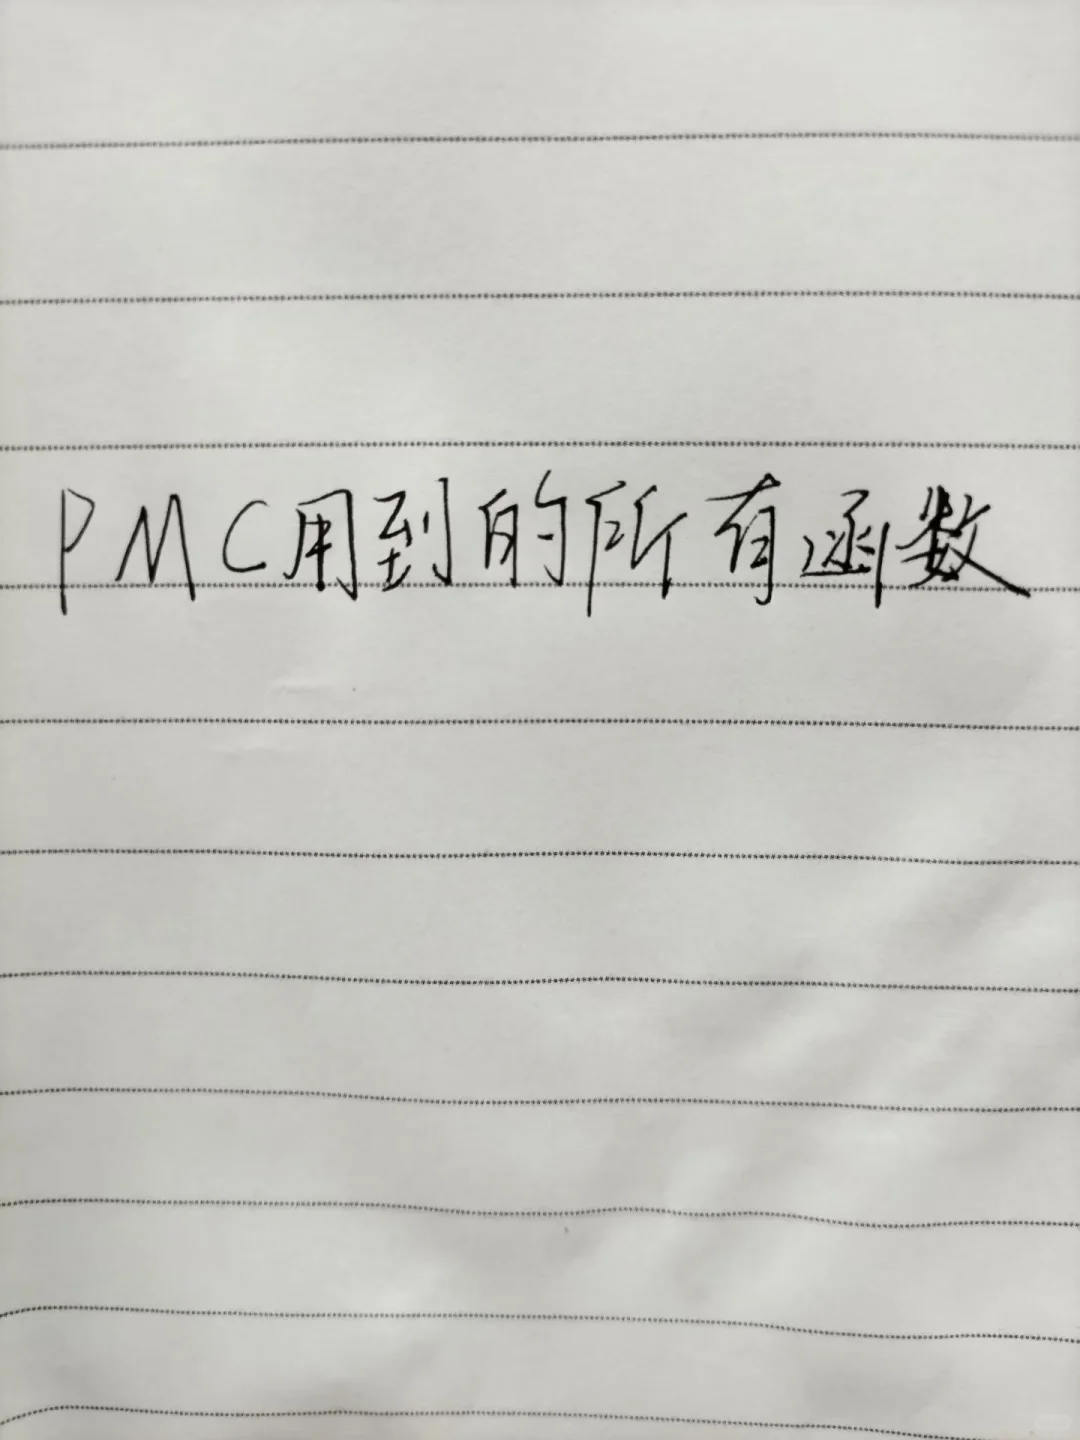 PMC用到的所有函数